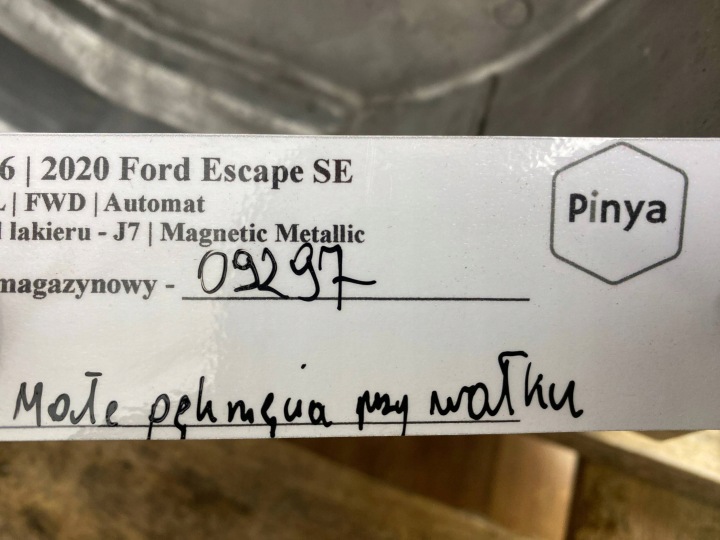 6 | 2020 Ford Escape SE
L | FWD | Automat
lakieru - J7 | Magnetic Metallic
magazynowy - 09297
Małe pęknięcia przy wałku
Pinya